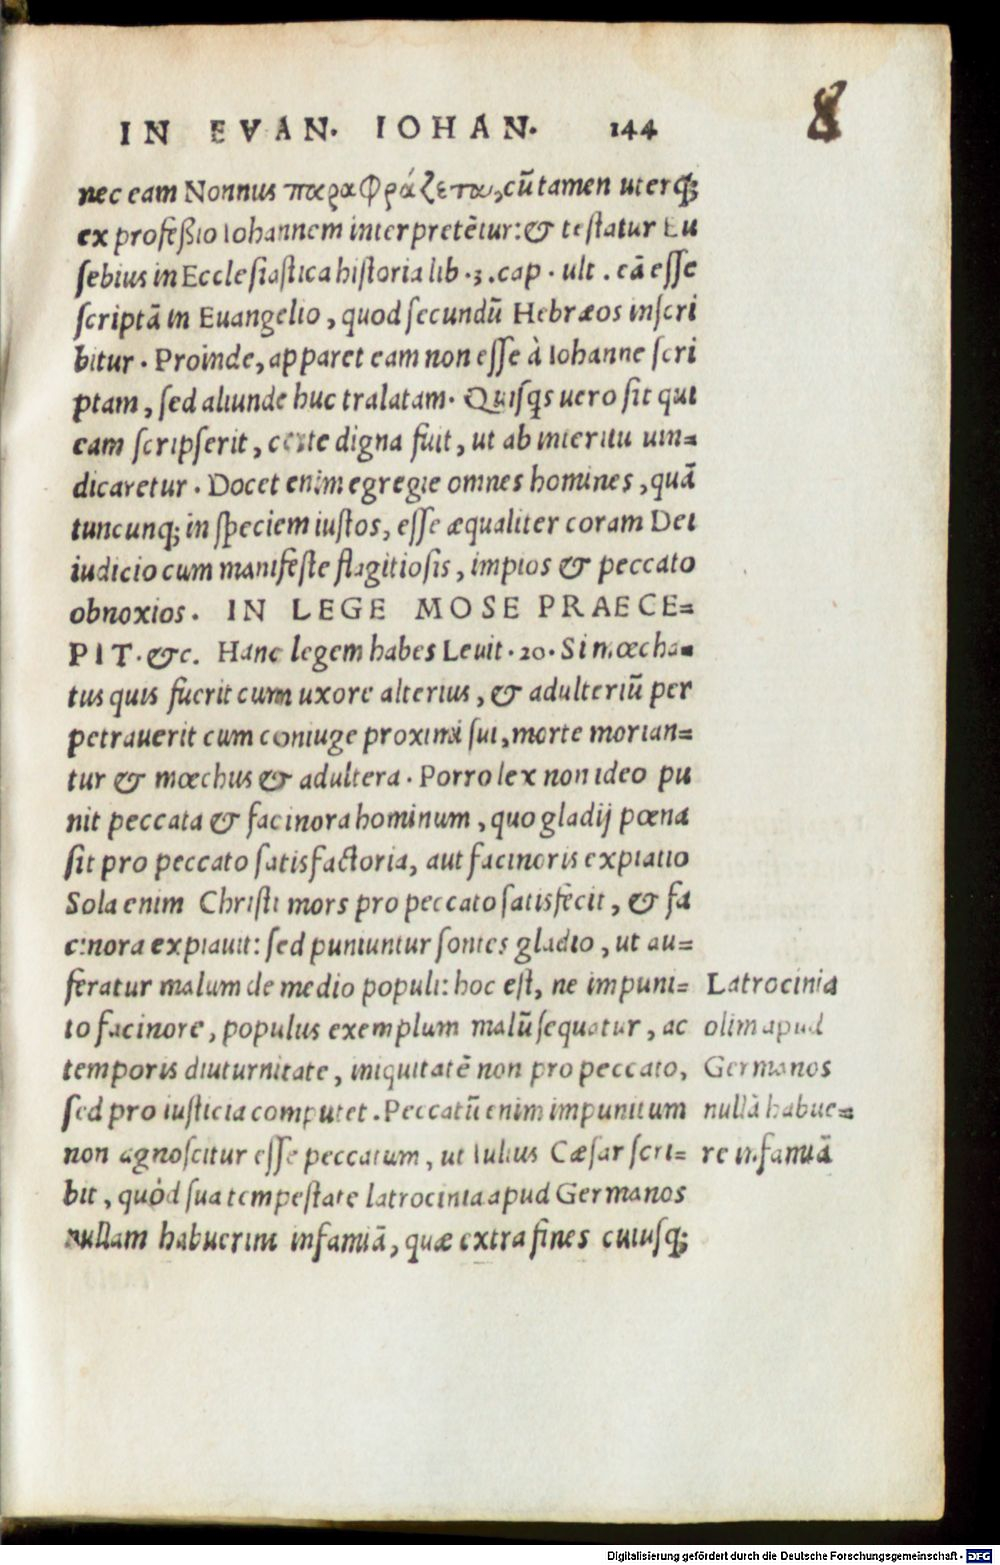 IN EVAN. IOHAN. 144
8
nec eam Nonnus παραφράζεται, cũ tamen uterq;
ex professo Iohannem interpretẽtur: & testatur Eu
sebius in Ecclesiastica historia lib. 3. cap. ult. eã esse
scriptã in Euangelio, quod secundũ Hebræos inscri
bitur. Proinde, apparet eam non esse à Iohanne scri
ptam, sed aliunde huc tralatam. Quisqs uero sit qui
eam scripserit, certe digna fuit, ut ab interitu uin=
dicaretur. Docet enim egregie omnes homines, quã
tuncunq; in speciem iustos, esse æqualiter coram Dei
iudicio cum manifeste flagitiosis, impios & peccato
obnoxios. IN LEGE MOSE PRAECE=
PIT. &c. Hanc legem habes Leuit. 20. Si mœcha=
tus quis fuerit cum uxore alterius, & adulteriũ per
petrauerit cum coniuge proximi sui, morte morian=
tur & mœchus & adultera. Porro lex non ideo pu
nit peccata & facinora hominum, quo gladij pœna
sit pro peccato satisfactoria, aut facinoris expiatio
Sola enim Christi mors pro peccato satisfecit, & fa
cinora expiauit: sed puniuntur sontes gladio, ut au=
feratur malum de medio populi: hoc est, ne impuni=
to facinore, populus exemplum malũ sequatur, ac
temporis diuturnitate, iniquitatẽ non pro peccato,
sed pro iusticia computet. Peccatũ enim impunitum
non agnoscitur esse peccatum, ut Iulius Cæsar scri=
bit, quòd sua tempestate latrocinia apud Germanos
nullam habuerint infamiã, quæ extra fines cuiusq;
Latrocinia
olim apud
Germanos
nullã habue=
re infamiã
Digitalisierung gefördert durch die Deutsche Forschungsgemeinschaft - DFG